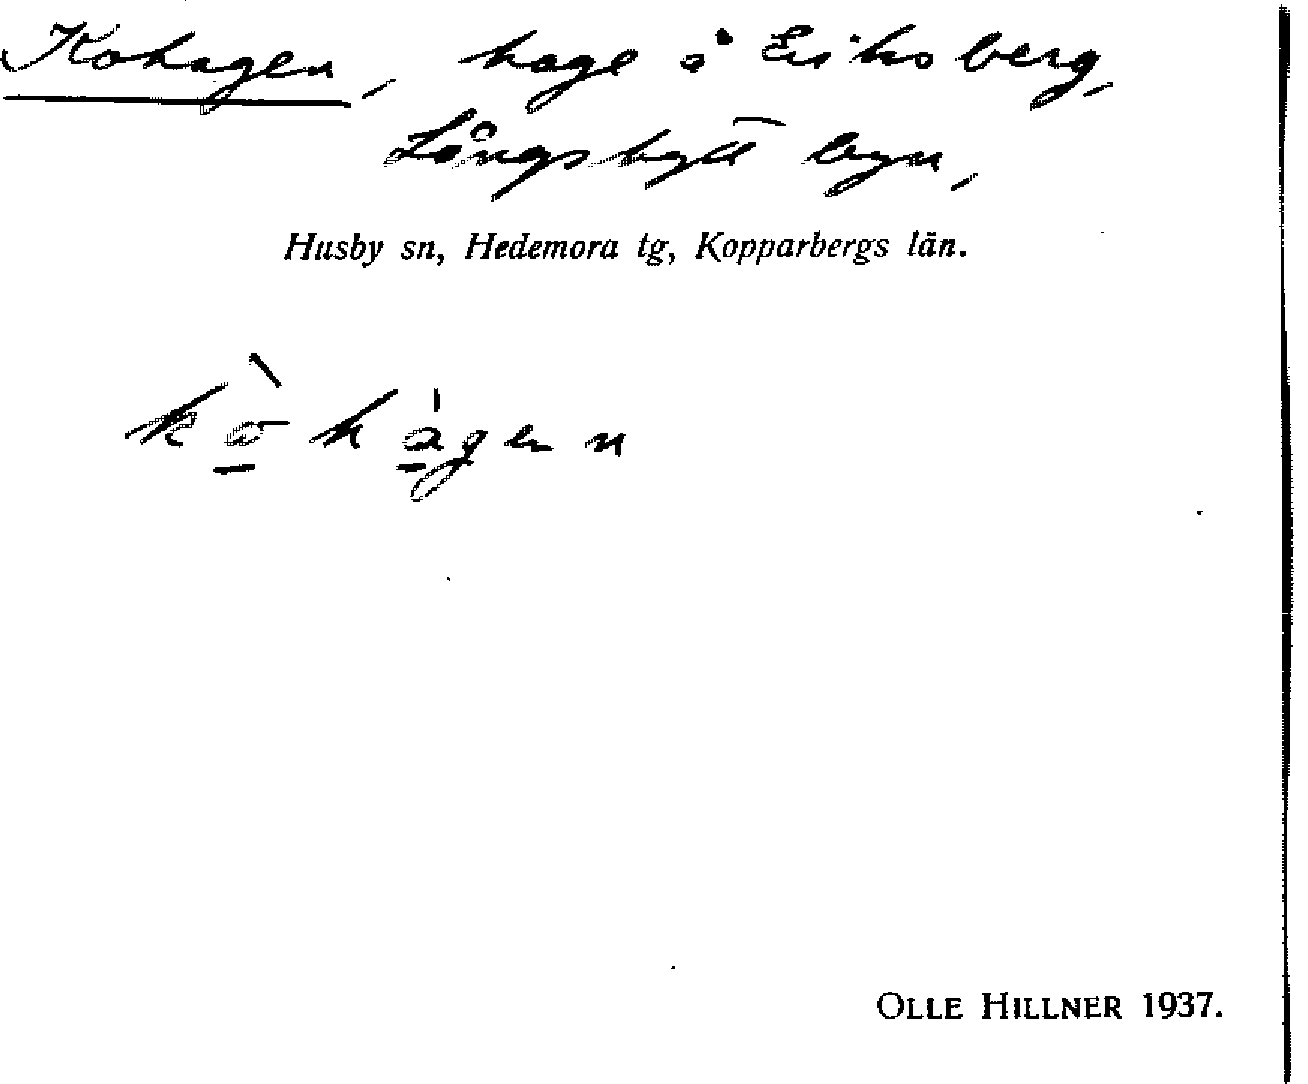 Kohagen, hage å Eriksberg,
Långsbytt byn,
Husby sn, Hedemora tg, Kopparbergs län.
kò̱há̱gen
OLLE HILLNER 1937.